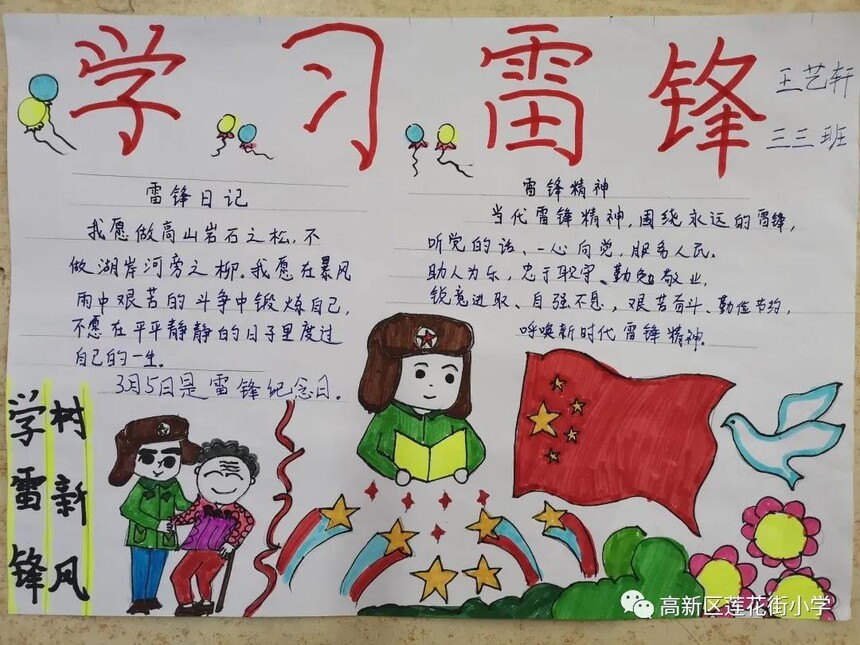 学习雷锋
王艺轩
三三班
雷锋日记
我愿做高山岩石之松,不
做湖岸河旁之柳。我愿在暴风
雨中艰苦的斗争中锻炼自己,
不愿在平平静静的日子里度过
自己的一生。
3月5日是雷锋纪念日。
雷锋精神
当代雷锋精神,围绕永远的雷锋,
听党的话、一心向党,服务人民。
助人为乐,忠于职守、勤勉敬业,
锐意进取、自强不息,艰苦奋斗、勤俭节约,
呼唤新时代雷锋精神。
学雷锋
树新风
高新区莲花街小学